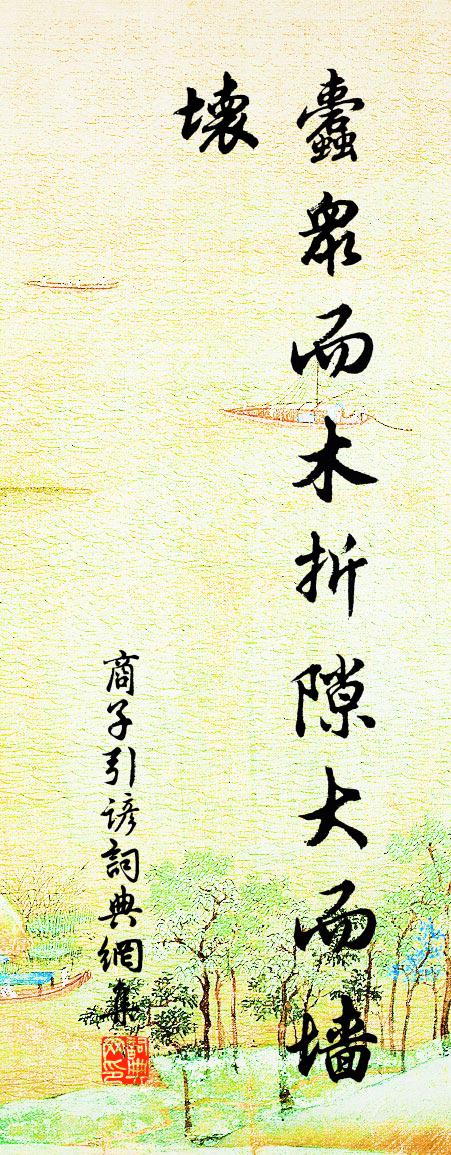 蠹衆而木折隙大而墙
壞
商子引諺詞典網集